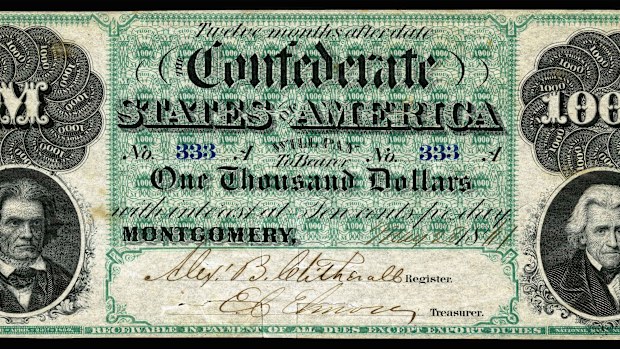 Twelve months after date
THE
Confederate
M
STATES OF AMERICA
100
WILL PAY
No. 333 A To Bearer No. 333 A
One Thousand Dollars
with interest at Ten cents per day
MONTGOMERY, 1861
Alex. B. Clitherall Register.
E C Elmore Treasurer.
RECEIVABLE IN PAYMENT OF ALL DUES EXCEPT EXPORT DUTIES